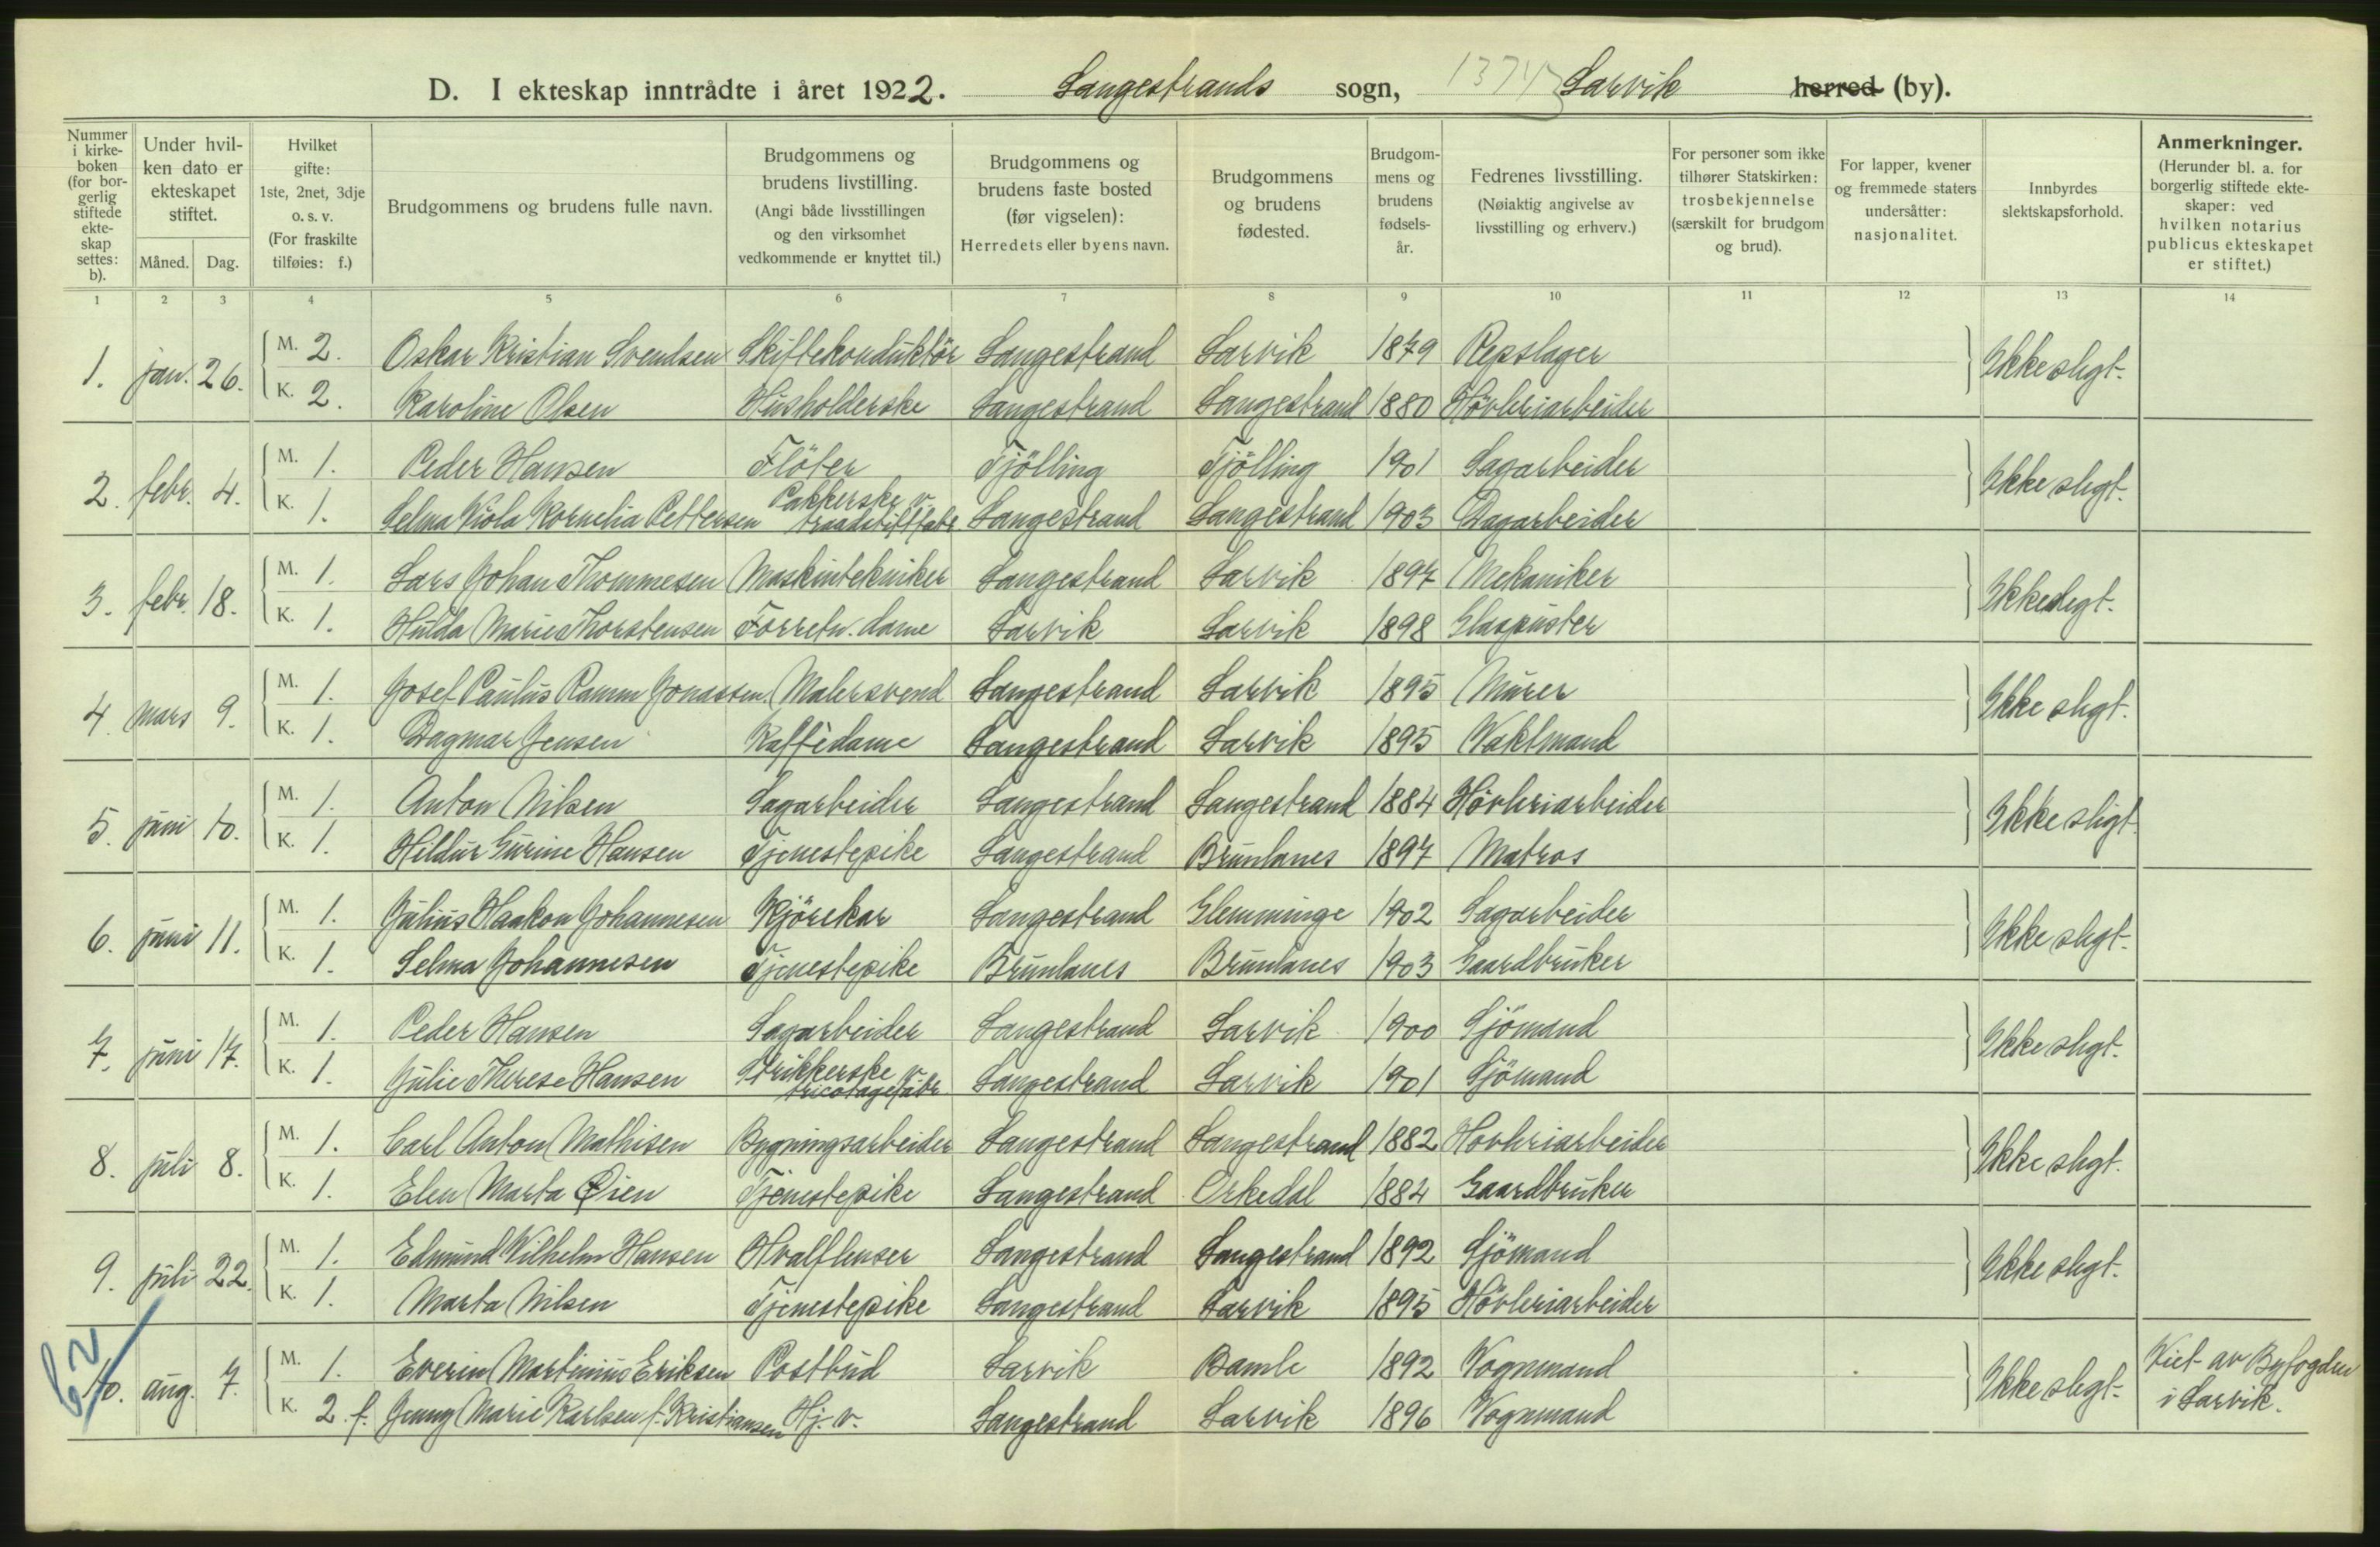 D. I ekteskap inntrådte i året 1922. Langestrands sogn, 1374 Larvik herred (by).
Nummer i kirkeboken (for borgerlig stiftede ekteskap settes: b).
Under hvilken dato er ekteskapet stiftet.
Måned. Dag.
Hvilket gifte: 1ste, 2net, 3dje o. s. v. (For fraskilte tilføies: f.)
Brudgommens og brudens fulle navn.
Brudgommens og brudens livstilling. (Angi både livsstillingen og den virksomhet vedkommende er knyttet til.)
Brudgommens og brudens faste bosted (før vigselen): Herredets eller byens navn.
Brudgommens og brudens fødested.
Brudgommens og brudens fødselsår.
Fedrenes livsstilling. (Nøiaktig angivelse av livsstilling og erhverv.)
For personer som ikke tilhører Statskirken: trosbekjennelse (særskilt for brudgom og brud).
For lapper, kvener og fremmede staters undersåtter: nasjonalitet.
Innbyrdes slektskapsforhold.
Anmerkninger. (Herunder bl. a. for borgerlig stiftede ekteskaper: ved hvilken notarius publicus ekteskapet er stiftet.)
1 2 3 4 5 6 7 8 9 10 11 12 13 14
1. jan. 26. M. 2. Oskar Kristian Svendsen Skiftekonduktör Langestrand Larvik 1879 Repslager Ikke slegt.
K. 2. Karoline Olsen Husholderske Langestrand Langestrand 1880 Hövleriarbeider
2. febr. 4. M. 1. Peder Hansen Flöter Tjölling Tjölling 1901 Sagarbeider Ikke slegt.
K. 1. Selma Viola Kornelia Pettersen Pakkerske v. traadstiftfabr. Langestrand Langestrand 1903 Dagarbeider
3. febr. 18. M. 1. Lars Johan Thommesen Maskintekniker Langestrand Larvik 1897 Mekaniker Ikke slegt.
K. 1. Hulda Marie Thorstensen Forretn. dame Larvik Larvik 1898 Glaspuster
4. mars 9. M. 1. Josef Paulus Ramm Jonassen. Malersvend Langestrand Larvik 1895 Murer Ikke slegt.
K. 1. Dagmar Jensen Kaffédame Langestrand Larvik 1895 Vaktmand
5. juni 10. M. 1. Anton Nilsen Sagarbeider Langestrand Langestrand 1884 Hövleriarbeider Ikke slegt.
K. 1. Hildur Gurine Hansen Tjenestepike Langestrand Brunlanes 1897 Matros
6. juni 11. M. 1. Julius Haakon Johannesen Kjörekar Langestrand Glemminge 1902 Sagarbeider Ikke slegt.
K. 1. Selma Johannesen Tjenestepike Brunlanes Brunlanes 1903 Gaardbruker
7. juni 17. M. 1. Peder Hansen Sagarbeider Langestrand Larvik 1900 Sjömand Ikke slegt.
K. 1. Julie Therese Hansen Strikkerske v. tricotagefabr. Langestrand Larvik 1901 Sjömand
8. juli 8. M. 1. Carl Anton Mathisen Bygningsarbeider Langestrand Langestrand 1882 Hövleriarbeider Ikke slegt.
K. 1. Elen Marta Øien Tjenestepike Langestrand Orkedal 1884 Gaardbruker
9. juli 22. M. 1. Edmund Vilhelm Hansen Hvalflenser Langestrand Langestrand 1892 Sjömand Ikke slegt.
K. 1. Marta Nilsen Tjenestepike Langestrand Larvik 1895 Hövleriarbeider
10. aug. 7. M. 1. Everin Martinius Eriksen Postbud Larvik Bamle 1892 Vognmand Ikke slegt. Viet av Byfogden i Larvik.
K. 2. f. Jenny Marie Karlsen f. Kristiansen Hj. v. Langestrand Larvik 1896 Vognmand